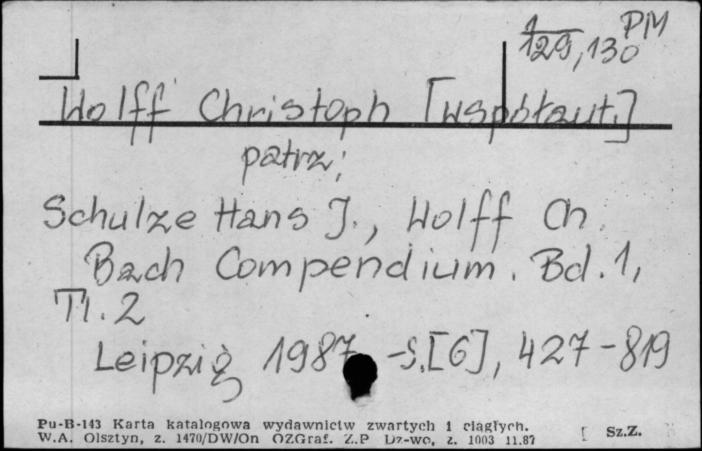 1/129, 130 PM
Wolff Christoph [współaut.]
patrz:
Schulze Hans J., Wolff Ch.
Bach Compendium. Bd. 1,
Tl. 2
Leipzig 1987 -S. [6], 427-819
Pu-B-143 Karta katalogowa wydawnictw zwartych i ciągłych. Sz.Z.
W.A. Olsztyn, z. 1470/DW/On OZGraf. Z.P Dz-wo, z. 1003 11.87